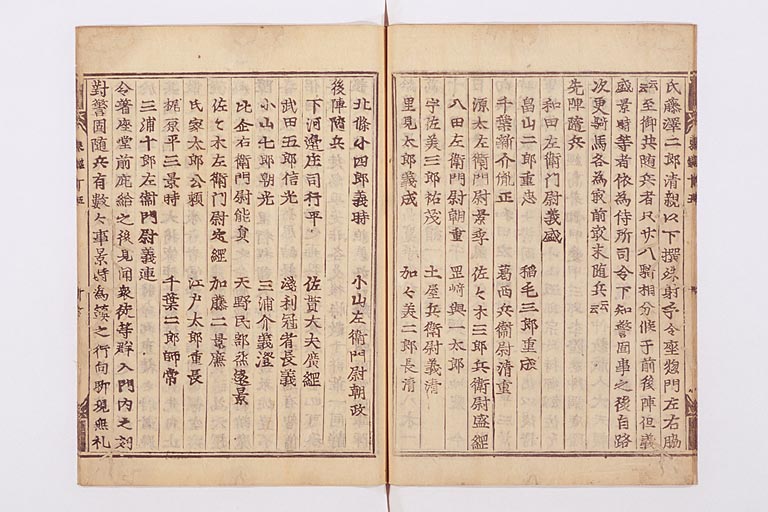 氏藤澤二郎清親以下撰殊射手令座惣門左右脇
云云至御共随兵者只廿八騎相分候于前後陣但義
盛景時等者依為侍所司令下知警固事之後自路
次更騎馬各為㝡前㝡末随兵云云
先陣随兵
和田左衛門尉義盛
畠山二郎重忠 稲毛三郎重成
千葉新介胤正 葛西兵衛尉清重
源太左衛門尉景季 佐々木三郎兵衛尉盛經
八田左衛門尉朝重 里﨑與一太郎
宇佐美三郎祐茂 土屋兵衛尉義清
里見太郎義成 加々美二郎長清
北條小四郎義時 小山左衛門尉朝政
後陣随兵
下河邊庄司行平 佐貫大夫廣經
武田五郎信光 淺利冠者長義
小山七郎朝光 三浦介義澄
比企右衛門尉能員 天野民部丞遠景
佐々木左衛門尉定經 加藤二景廉
氏家太郎公頼 江戸太郎重長
梶原平三景時 千葉二郎師常
三浦十郎左衛門尉義連
令着座堂前庇給之後見聞衆徒等群入門内之刻
對警固随兵有數々事景時為鎮之行向聊現無礼